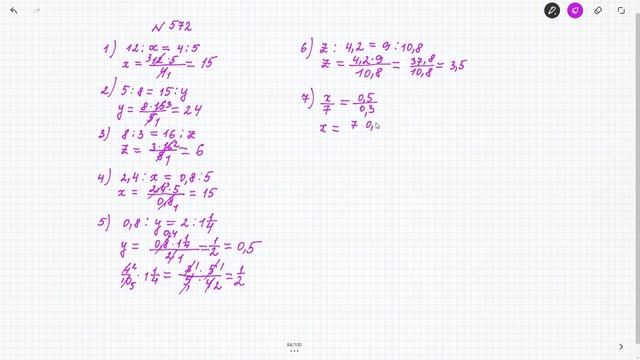 N 572
1) 12 : x = 4 : 5
x = 12 · 5 / 4 = 15
2) 5 : 8 = 15 : y
y = 8 · 15 / 5 = 24
3) 8 : 3 = 16 : z
z = 3 · 16 / 8 = 6
4) 2,4 : x = 0,8 : 5
x = 2,4 · 5 / 0,8 = 15
5) 0,8 : y = 2 : 1 1/4
y = 0,8 · 1 1/4 / 2 = 1/2 = 0,5
4/10 · 1 1/4 = 2 · 5 / 5 · 4 = 1/2
6) z : 4,2 = 9 : 10,8
z = 4,2 · 9 / 10,8 = 37,8 / 10,8 = 3,5
7) x / 7 = 0,5 / 0,3
x = 7 0,
84/100